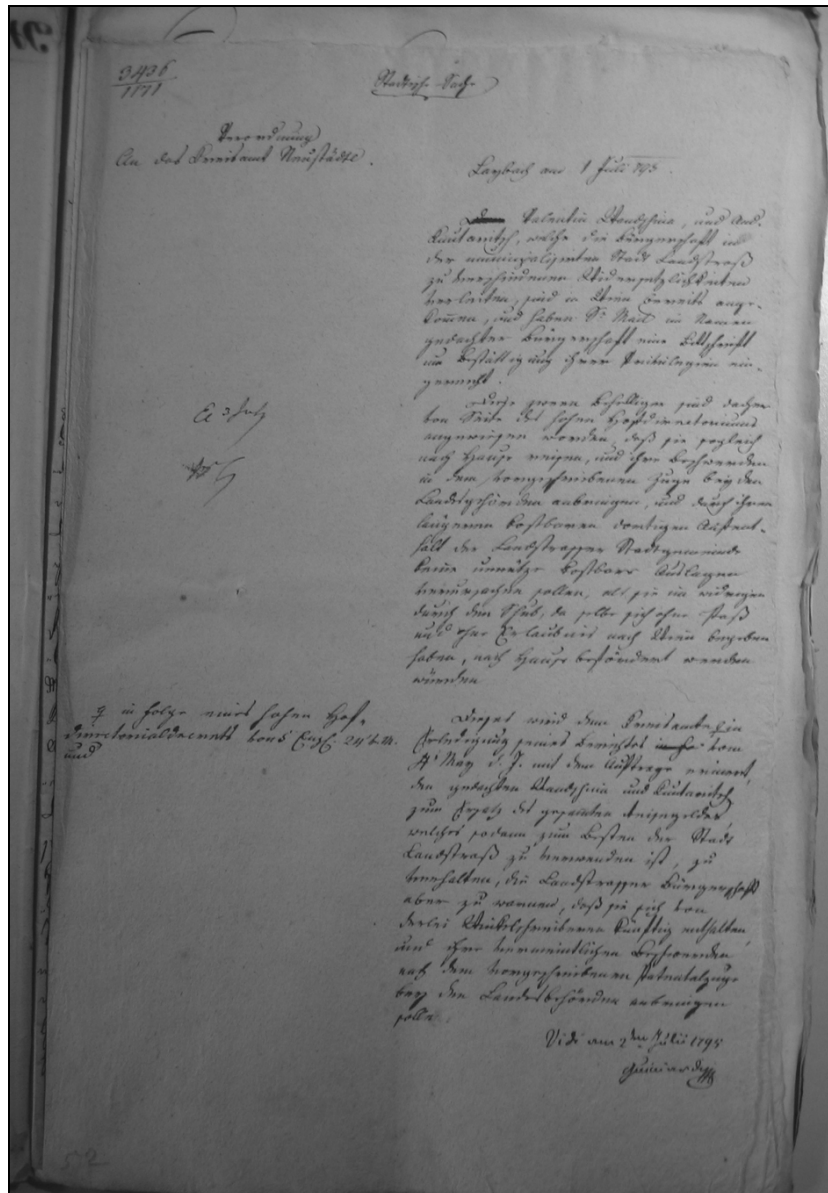 3436
1171
Städtische Sache
Verordnung
An das Kreisamt Neustädtl.
Laybach am 1 Juli 795.
Valentin Wendschina, und And.
Kautaritsch, welche die Bürgerschaft in
der municipalisirten Stadt Landstraß
zu verschiedenen Widersetzlichkeiten
verleiten, sind in Wien bereits ange-
kommen, und haben Sr Mait im Namen
gedachter Bürgerschaft eine Bittschrift
um Bestättigung ihrer Privilegien ein-
gereicht.
Diese zween sind daher
von Seite des hohen Hofdirectoriums
angewiesen worden, daß sie sogleich
nach Hause reisen, und ihre Beschwerden
in dem vorgeschriebenen Zuge bey den
Landesbehörden anbringen, und durch ihren
längeren kostbaren dortigen Aufent-
halt der Landstrasser Stadtgemeinde
keine unnütze kostbare Auslagen
verursachen sollen, als sie im widrigen
durch den Schub, da selbe sich ohne Paß
und ohne Erlaubnis nach Wien begeben
haben, nach Hause befördert werden
würden.
in Folge eines hohen Hof-
directorialdecrets vom 24
und
Dieses wird dem Kreisamte in
Erledigung seines Berichtes vom
May d. J. mit dem Auftrage erinnert,
den gedachten Wendschina und Kautaritsch
zum Ersatz des gesamten Reisegeldes,
welches sodann zum Besten der Stadt
Landstraß zu verwenden ist, zu
verhalten, die Landstrasser Bürgerschaft
aber zu warnen, daß sie sich von
derlei Winkelschreibern künftig enthalten,
und ihre vermeintlichen Beschwerden
nach dem vorgeschriebenen Patentalzuge
bey den Landesbehörden anbringen
solle.
Vidi am 2ten Julii 1795
52